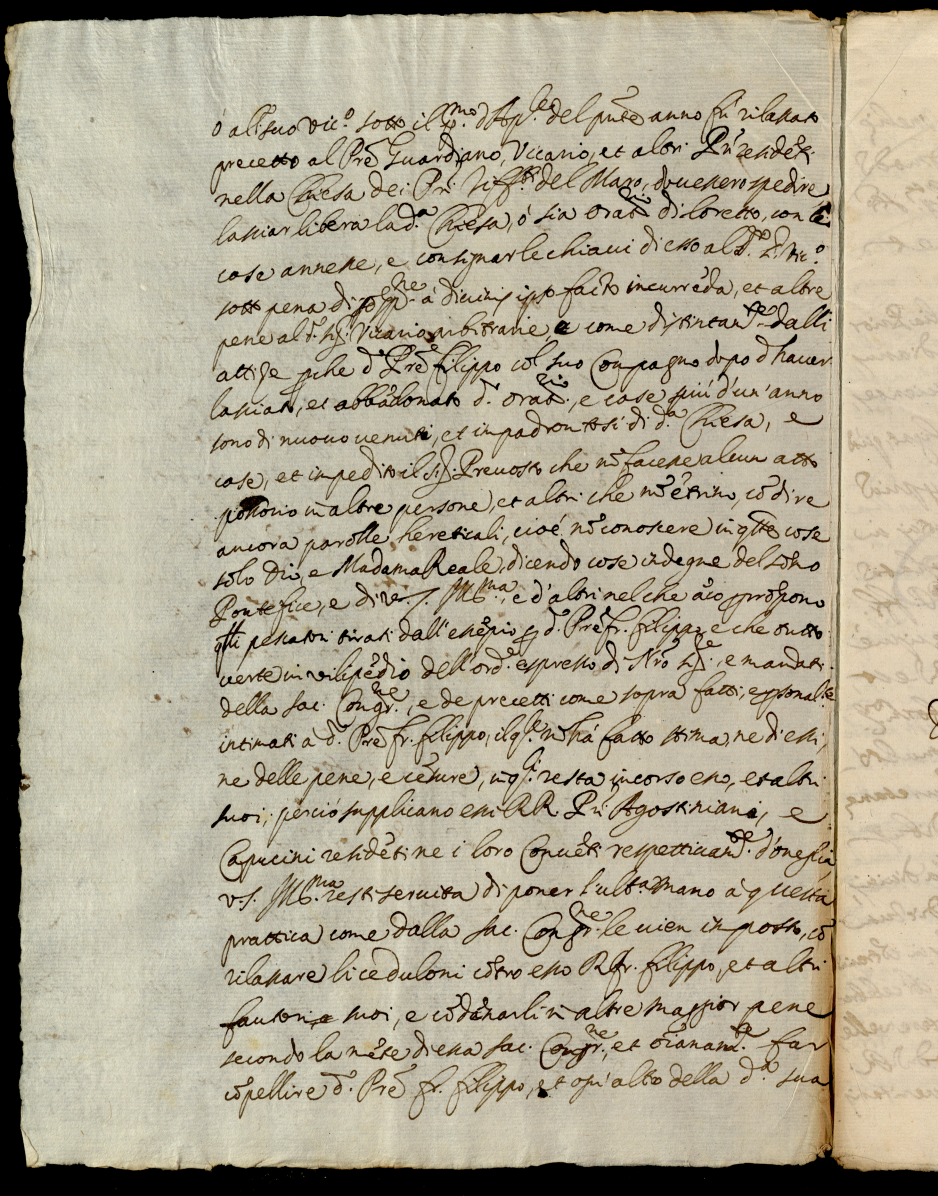 ò al suo Vic.° sotto il p.mo d'Ap.le del pnte anno fù rilassato
precetto al Pre Guardiano, Vicario, et altri Pri residēti
nella Chiesa dei Pri del Maro, dovessero spedire
lassiar libera la d.a Chiesa, ò sia Orat.rio di loreto, con le
case annesse, e consignar le chiavi di esso al d.° S.r Vic.°
sotto pena di sosp.ne à divinis ipso facto incurrēda, et altre
pene al d.° Sig. Vicario arbitrarie e come distintam.te dalli
atti perche d.° Pre filippo col suo Compagno dopo d'haver
lassiato, et abbādonato d.° Orat.rio, e case più d'un'anno
sono di nuovo venuti, et impadronitosi di d.a Chiesa, e
case, et impedito il Sig. Prevosto che nō facesse alcun atto
possorio in altre persone, et altri che nō ētrino, cō dire
ancora parolle hereticali, cioè nō conoscere in qste cose
solo Dio, e Madama Reale, dicendo cose indegne del sōmo
Pontefice, e di V. S. Ill.ma, e d'altri nel che
qlli peccatori tirati dall'esēpio d.° Pre fr. filippo e che tutto
verte in vilipēdio dell'ord.e espresso di Nro Sig.re, e mandati
della Sac. Congr.ne, e de precetti come sopra fatti, e psonal.te
intimati à d.° Pre fr. filippo, il q.le nō hà fatto stima, ne di essi,
ne delle pene, e cēsure, in q.li resta incorso esso, et altri
suoi; perciò supplicano essi RR. Pri Agostiniani, e
Capucini residēti ne i loro Convēti respettivam.te d'oneglia
V. S. Ill.ma resti servita di poner l'ult.a mano à questa
prattica come dalla Sac. Congr.ne le vien imposto, cō
rilassare li ceduloni cōtro esso R. fr. filippo, et altri
fautori suoi, e cōdēnarli in altre maggior pene
secondo la mēte di essa Sac. Congr.ne, et far
cōpellire d.° Pre fr. filippo, et ogn'altro della d.a sua